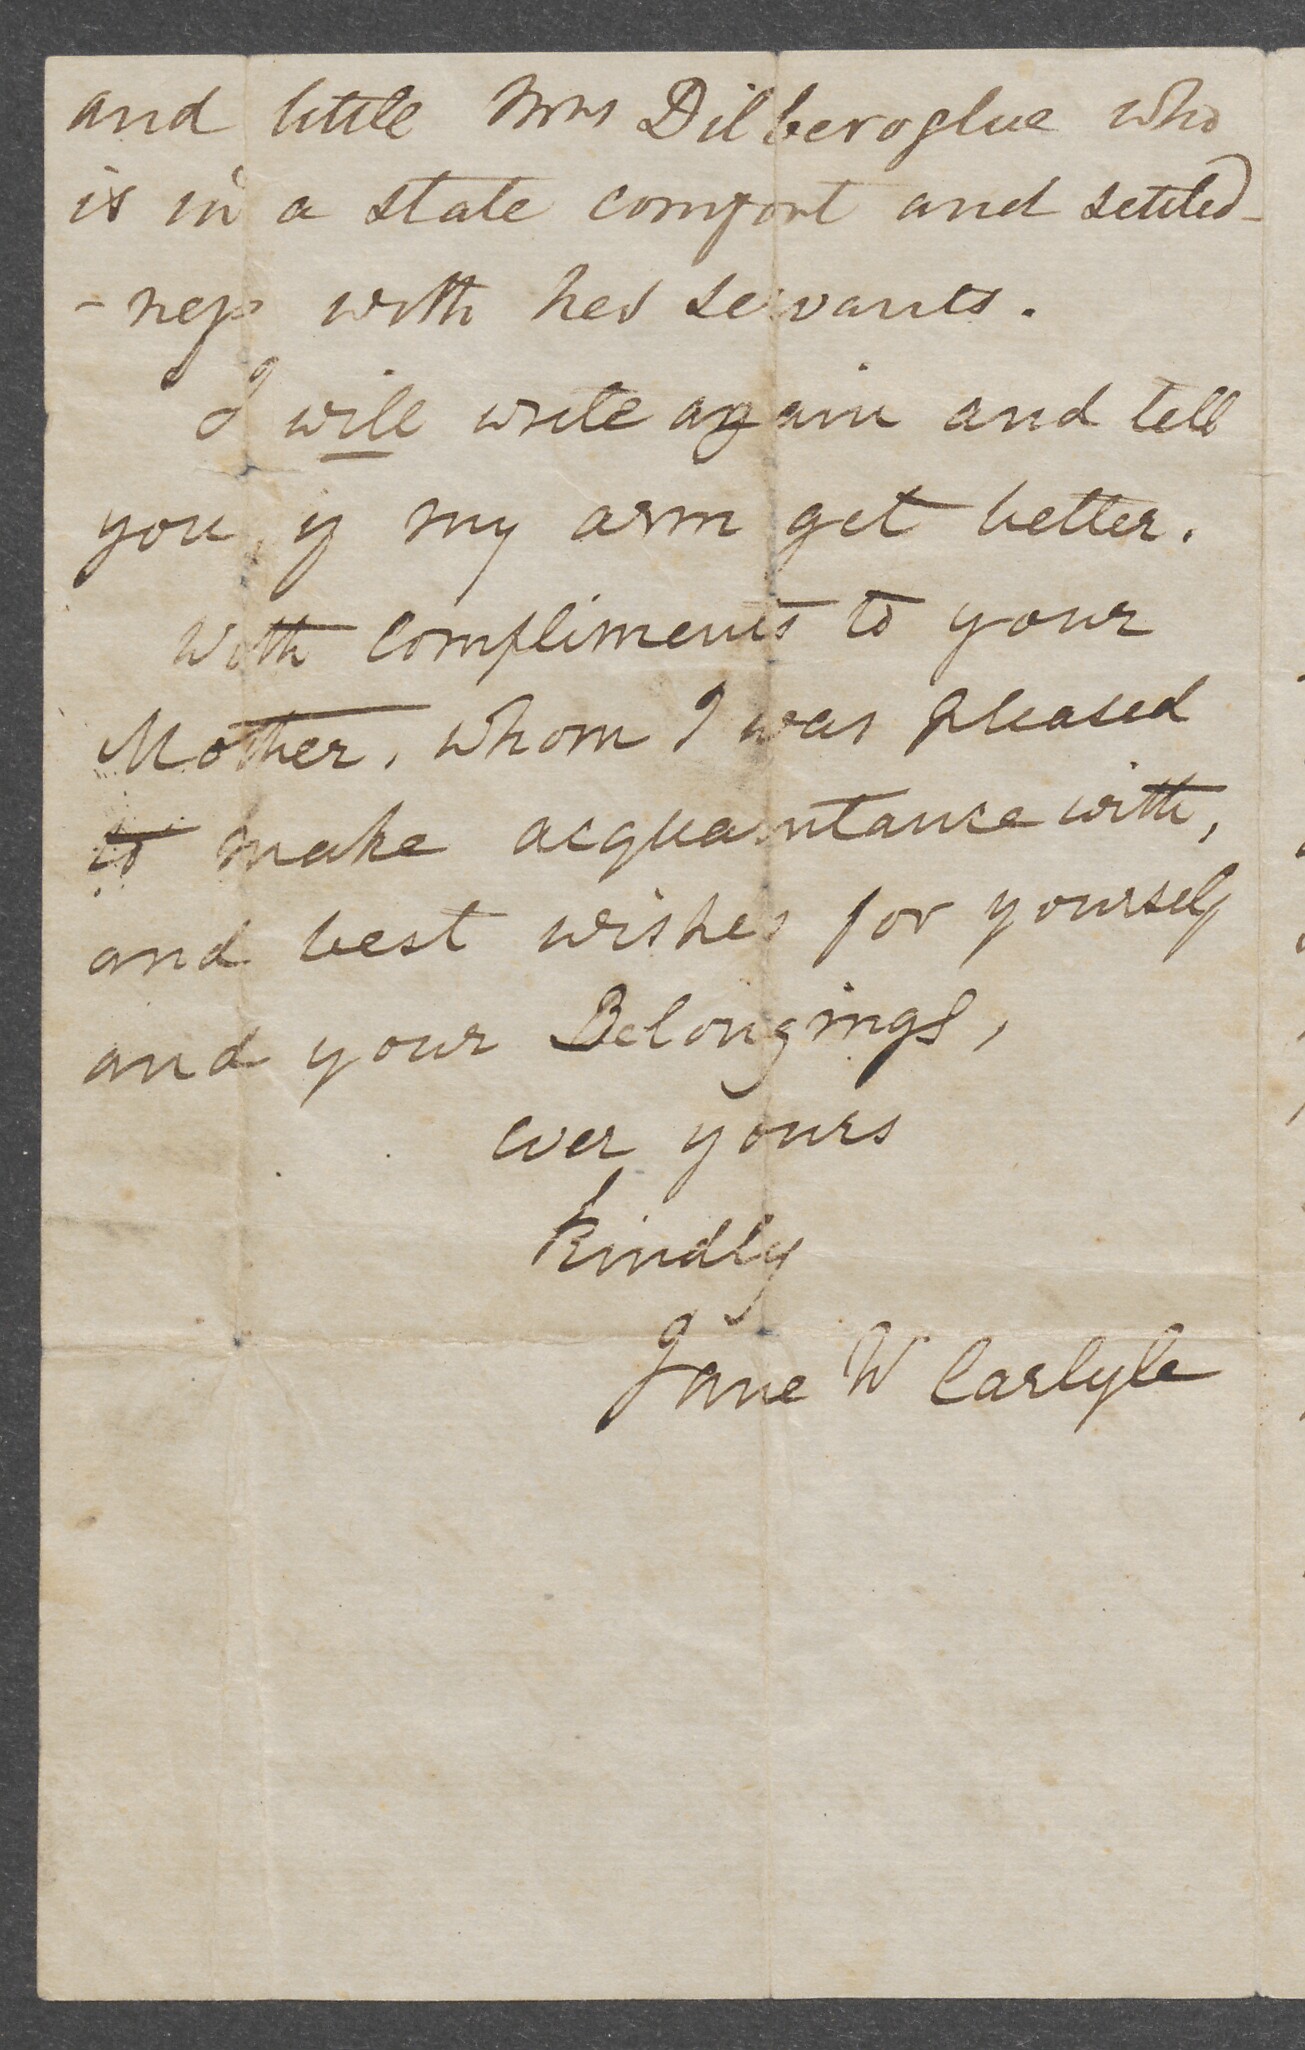 and little Mrs Dilberoglue who
is in a state comfort and settled-
-ness with her servants.
I will write again and tell
you, if my arm get better.
With compliments to your
Mother, whom I was pleased
to make acquaintance with,
and best wishes for yourself
and your Belongings,
ever yours
kindly
Jane W Carlyle